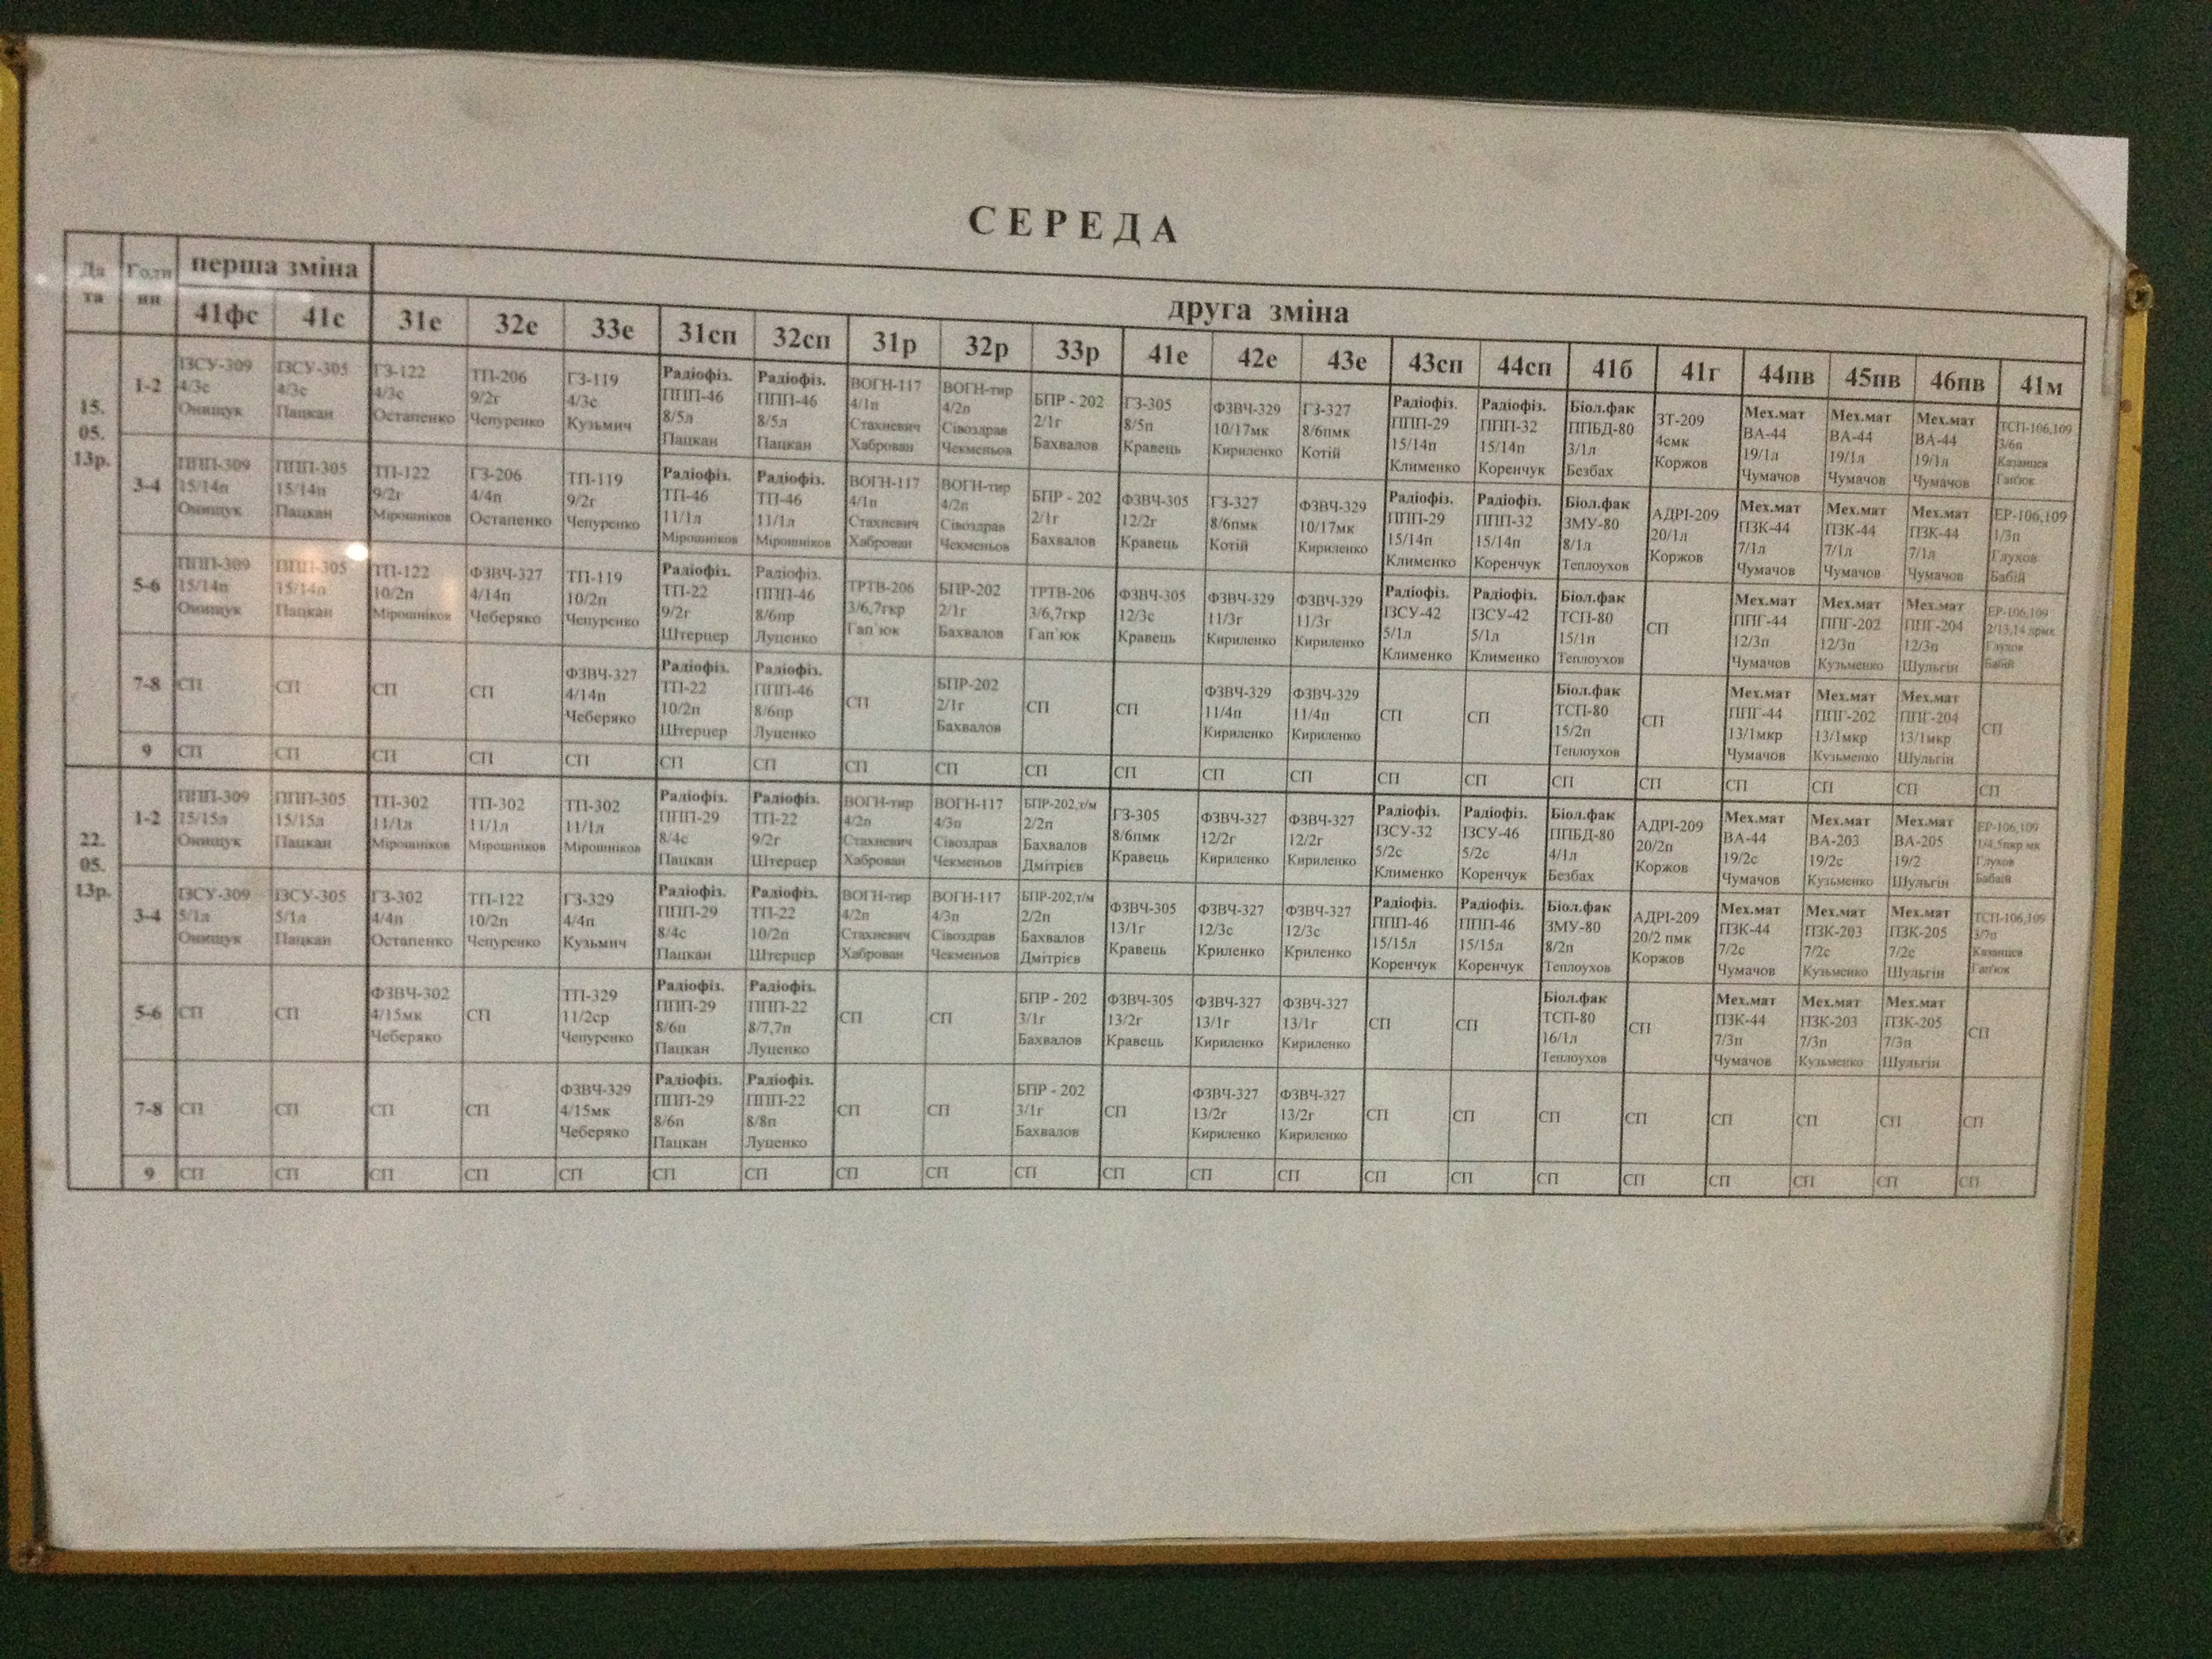 СЕРЕДА
Да та Години перша зміна друга зміна
41фс 41с 31е 32е 33е 31сп 32сп 31р 32р 33р 41е 42е 43е 43сп 44сп 41б 41г 44пв 45пв 46пв 41м
15. 05. 13р.
1-2
ІЗСУ-309 4/3с Онищук
ІЗСУ-305 4/3с Пацкан
ГЗ-122 4/3с Остапенко
ТП-206 9/2г Чепуренко
ГЗ-119 4/3с Кузьмич
Радіофіз. ППП-46 8/5л Пацкан
Радіофіз. ППП-46 8/5л Пацкан
ВОГН-117 4/1п Стахневич Хаброван
ВОГН-тир 4/2п Сівоздрав Чекменьов
БПР - 202 2/1г Бахвалов
ГЗ-305 8/5п Кравець
ФЗВЧ-329 10/17мк Кириленко
ГЗ-327 8/6пмк Котій
Радіофіз. ППП-29 15/14п Клименко
Радіофіз. ППП-32 15/14п Коренчук
Біол.фак ППБД-80 3/1л Безбах
ЗТ-209 4смк Коржов
Мех.мат ВА-44 19/1л Чумачов
Мех.мат ВА-44 19/1л Чумачов
Мех.мат ВА-44 19/1л Чумачов
ТСП-106,109 3/6п Казанцев Гап'юк
3-4
ППП-309 15/14п Онищук
ППП-305 15/14п Пацкан
ТП-122 9/2г Мірошніков
ГЗ-206 4/4п Остапенко
ТП-119 9/2г Чепуренко
Радіофіз. ТП-46 11/1л Мірошніков
Радіофіз. ТП-46 11/1л Мірошніков
ВОГН-117 4/1п Стахневич Хаброван
ВОГН-тир 4/2п Сівоздрав Чекменьов
БПР - 202 2/1г Бахвалов
ФЗВЧ-305 12/2г Кравець
ГЗ-327 8/6пмк Котій
ФЗВЧ-329 10/17мк Кириленко
Радіофіз. ППП-29 15/14п Клименко
Радіофіз. ППП-32 15/14п Коренчук
Біол.фак ЗМУ-80 8/1л Теплоухов
АДРІ-209 20/1л Коржов
Мех.мат ПЗК-44 7/1л Чумачов
Мех.мат ПЗК-44 7/1л Чумачов
Мех.мат ПЗК-44 7/1л Чумачов
ЕР-106,109 1/3п Глухов Бабій
5-6
ППП-309 15/14п Онищук
ППП-305 15/14п Пацкан
ТП-122 10/2п Мірошніков
ФЗВЧ-327 4/14п Чеберяко
ТП-119 10/2п Чепуренко
Радіофіз. ТП-22 9/2г Штерцер
Радіофіз. ППП-46 8/6пр Луценко
ТРТВ-206 3/6,7гкр Гап'юк
БПР-202 2/1г Бахвалов
ТРТВ-206 3/6,7гкр Гап'юк
ФЗВЧ-305 12/3с Кравець
ФЗВЧ-329 11/3г Кириленко
ФЗВЧ-329 11/3г Кириленко
Радіофіз. ІЗСУ-42 5/1л Клименко
Радіофіз. ІЗСУ-42 5/1л Клименко
Біол.фак ТСП-80 15/1п Теплоухов
СП
Мех.мат ППГ-44 12/3п Чумачов
Мех.мат ППГ-202 12/3п Кузьменко
Мех.мат ППГ-204 12/3п Шульгін
ЕР-106,109 2/13,14 Глухов Бабій
7-8
СП СП СП СП
ФЗВЧ-327 4/14п Чеберяко
Радіофіз. ТП-22 10/2п Штерцер
Радіофіз. ППП-46 8/6пр Луценко
СП
БПР-202 2/1г Бахвалов
СП СП
ФЗВЧ-329 11/4п Кириленко
ФЗВЧ-329 11/4п Кириленко
СП СП
Біол.фак ТСП-80 15/2п Теплоухов
СП
Мех.мат ППГ-44 13/1мкр Чумачов
Мех.мат ППГ-202 13/1мкр Кузьменко
Мех.мат ППГ-204 13/1мкр Шульгін
СП
9 СП СП СП СП СП СП СП СП СП СП СП СП СП СП СП СП СП СП СП СП СП
22. 05. 13р.
1-2
ППП-309 15/15л Онищук
ППП-305 15/15л Пацкан
ТП-302 11/1л Мірошніков
ТП-302 11/1л Мірошніков
ТП-302 11/1л Мірошніков
Радіофіз. ППП-29 8/4с Пацкан
Радіофіз. ТП-22 9/2г Штерцер
ВОГН-тир 4/2п Стахневич Хаброван
ВОГН-117 4/3п Сівоздрав Чекменьов
БПР-202,т/м 2/2п Бахвалов Дмітрієв
ГЗ-305 8/6пмк Кравець
ФЗВЧ-327 12/2г Кириленко
ФЗВЧ-327 12/2г Кириленко
Радіофіз. ІЗСУ-32 5/2с Клименко
Радіофіз. ІЗСУ-46 5/2с Коренчук
Біол.фак ППБД-80 4/1л Безбах
АДРІ-209 20/2п Коржов
Мех.мат ВА-44 19/2с Чумачов
Мех.мат ВА-203 19/2с Кузьменко
Мех.мат ВА-205 19/2 Шульгін
ЕР-106,109 1/4,5пкр мк Глухов
3-4
ІЗСУ-309 5/1л Онищук
ІЗСУ-305 5/1л Пацкан
ГЗ-302 4/4п Остапенко
ТП-122 10/2п Чепуренко
ГЗ-329 4/4п Кузьмич
Радіофіз. ППП-29 8/4с Пацкан
Радіофіз. ТП-22 10/2п Штерцер
ВОГН-тир 4/2п Стахневич Хаброван
ВОГН-117 4/3п Сівоздрав Чекменьов
БПР-202,т/м 2/2п Бахвалов Дмітрієв
ФЗВЧ-305 13/1г Кравець
ФЗВЧ-327 12/3с Криленко
ФЗВЧ-327 12/3с Криленко
Радіофіз. ППП-46 15/15л Коренчук
Радіофіз. ППП-46 15/15л Коренчук
Біол.фак ЗМУ-80 8/2п Теплоухов
АДРІ-209 20/2 пмк Коржов
Мех.мат ПЗК-44 7/2с Чумачов
Мех.мат ПЗК-203 7/2с Кузьменко
Мех.мат ПЗК-205 7/2с Шульгін
ТСП-106,109 3/7п Казанцев Гап'юк
5-6
СП СП
ФЗВЧ-302 4/15мк Чеберяко
СП
ТП-329 11/2ср Чепуренко
Радіофіз. ППП-29 8/6п Пацкан
Радіофіз. ППП-22 8/7,7п Луценко
СП СП
БПР - 202 3/1г Бахвалов
ФЗВЧ-305 13/2г Кравець
ФЗВЧ-327 13/1г Кириленко
ФЗВЧ-327 13/1г Кириленко
СП СП
Біол.фак ТСП-80 16/1л Теплоухов
СП
Мех.мат ПЗК-44 7/3п Чумачов
Мех.мат ПЗК-203 7/3п Кузьменко
Мех.мат ПЗК-205 7/3п Шульгін
СП
7-8
СП СП СП СП
ФЗВЧ-329 4/15мк Чеберяко
Радіофіз. ППП-29 8/6п Пацкан
Радіофіз. ППП-22 8/8п Луценко
СП СП
БПР - 202 3/1г Бахвалов
СП
ФЗВЧ-327 13/2г Кириленко
ФЗВЧ-327 13/2г Кириленко
СП СП СП СП СП СП СП СП
9 СП СП СП СП СП СП СП СП СП СП СП СП СП СП СП СП СП СП СП СП СП